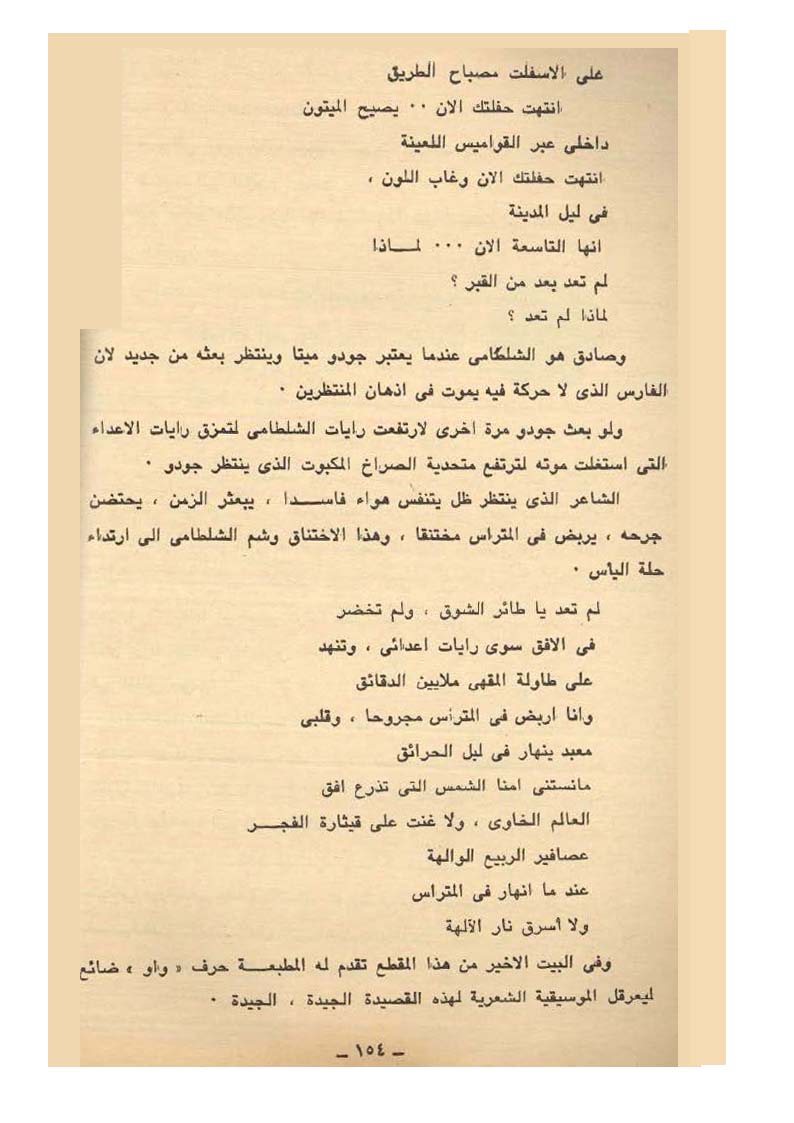 على الاسفلت مصباح الطريق
انتهت حفلتك الان ٠٠ يصيح الميتون
داخلى عبر القواميس اللعينة
انتهت حفلتك الان وغاب اللون ،
فى ليل المدينة
انها التاسعة الان ٠٠٠ لمـــاذا
لم تعد بعد من القبر ؟
لماذا لم تعد ؟
وصادق هو الشلطامى عندما يعتبر جودو ميتا وينتظر بعثه من جديد لان
الفارس الذى لا حركة فيه يموت فى اذهان المنتظرين ٠
ولو بعث جودو مرة اخرى لارتفعت رايات الشلطامى لتمزق رايات الاعداء
التى استغلت موته لترتفع متحدية الصراخ المكبوت الذى ينتظر جودو ٠
الشاعر الذى ينتظر ظل يتنفس هواء فاســـدا ، يبعثر الزمن ، يحتضن
جرحه ، يربض فى المتراس مختنقا ، وهذا الاختناق وشم الشلطامى الى ارتداء
حلة اليأس ٠
لم تعد يا طائر الشوق ، ولم تخضر
فى الافق سوى رايات اعدائى ، وتنهد
على طاولة المقهى ملايين الدقائق
وانا اربض فى المتراس مجروحا ، وقلبى
معبد ينهار فى ليل الحرائق
مانستنى امنا الشمس التى تذرع افق
العالم الخاوى ، ولا غنت على قيثارة الفجـــر
عصافير الربيع الوالهة
عند ما انهار فى المتراس
ولا أسرق نار الآلهة
وفى البيت الاخير من هذا المقطع تقدم له المطبعـــة حرف « واو » ضائع
ليعرقل الموسيقية الشعرية لهذه القصيدة الجيدة ، الجيدة ٠
ــ ١٥٤ ــ